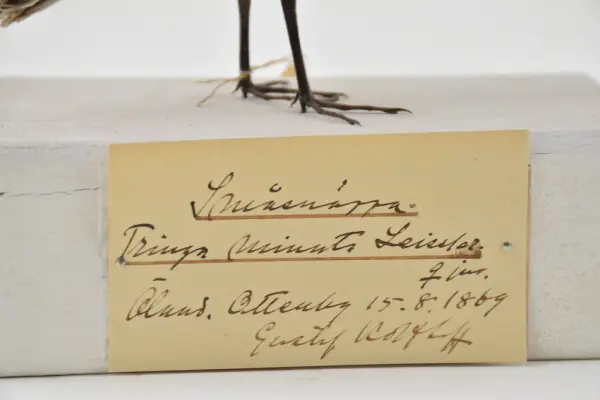 Småsnäppa.
Tringa minuta Leissler.
♀ juv.
Öland. Ottenby 15.8.1869
Gustaf Kolthoff